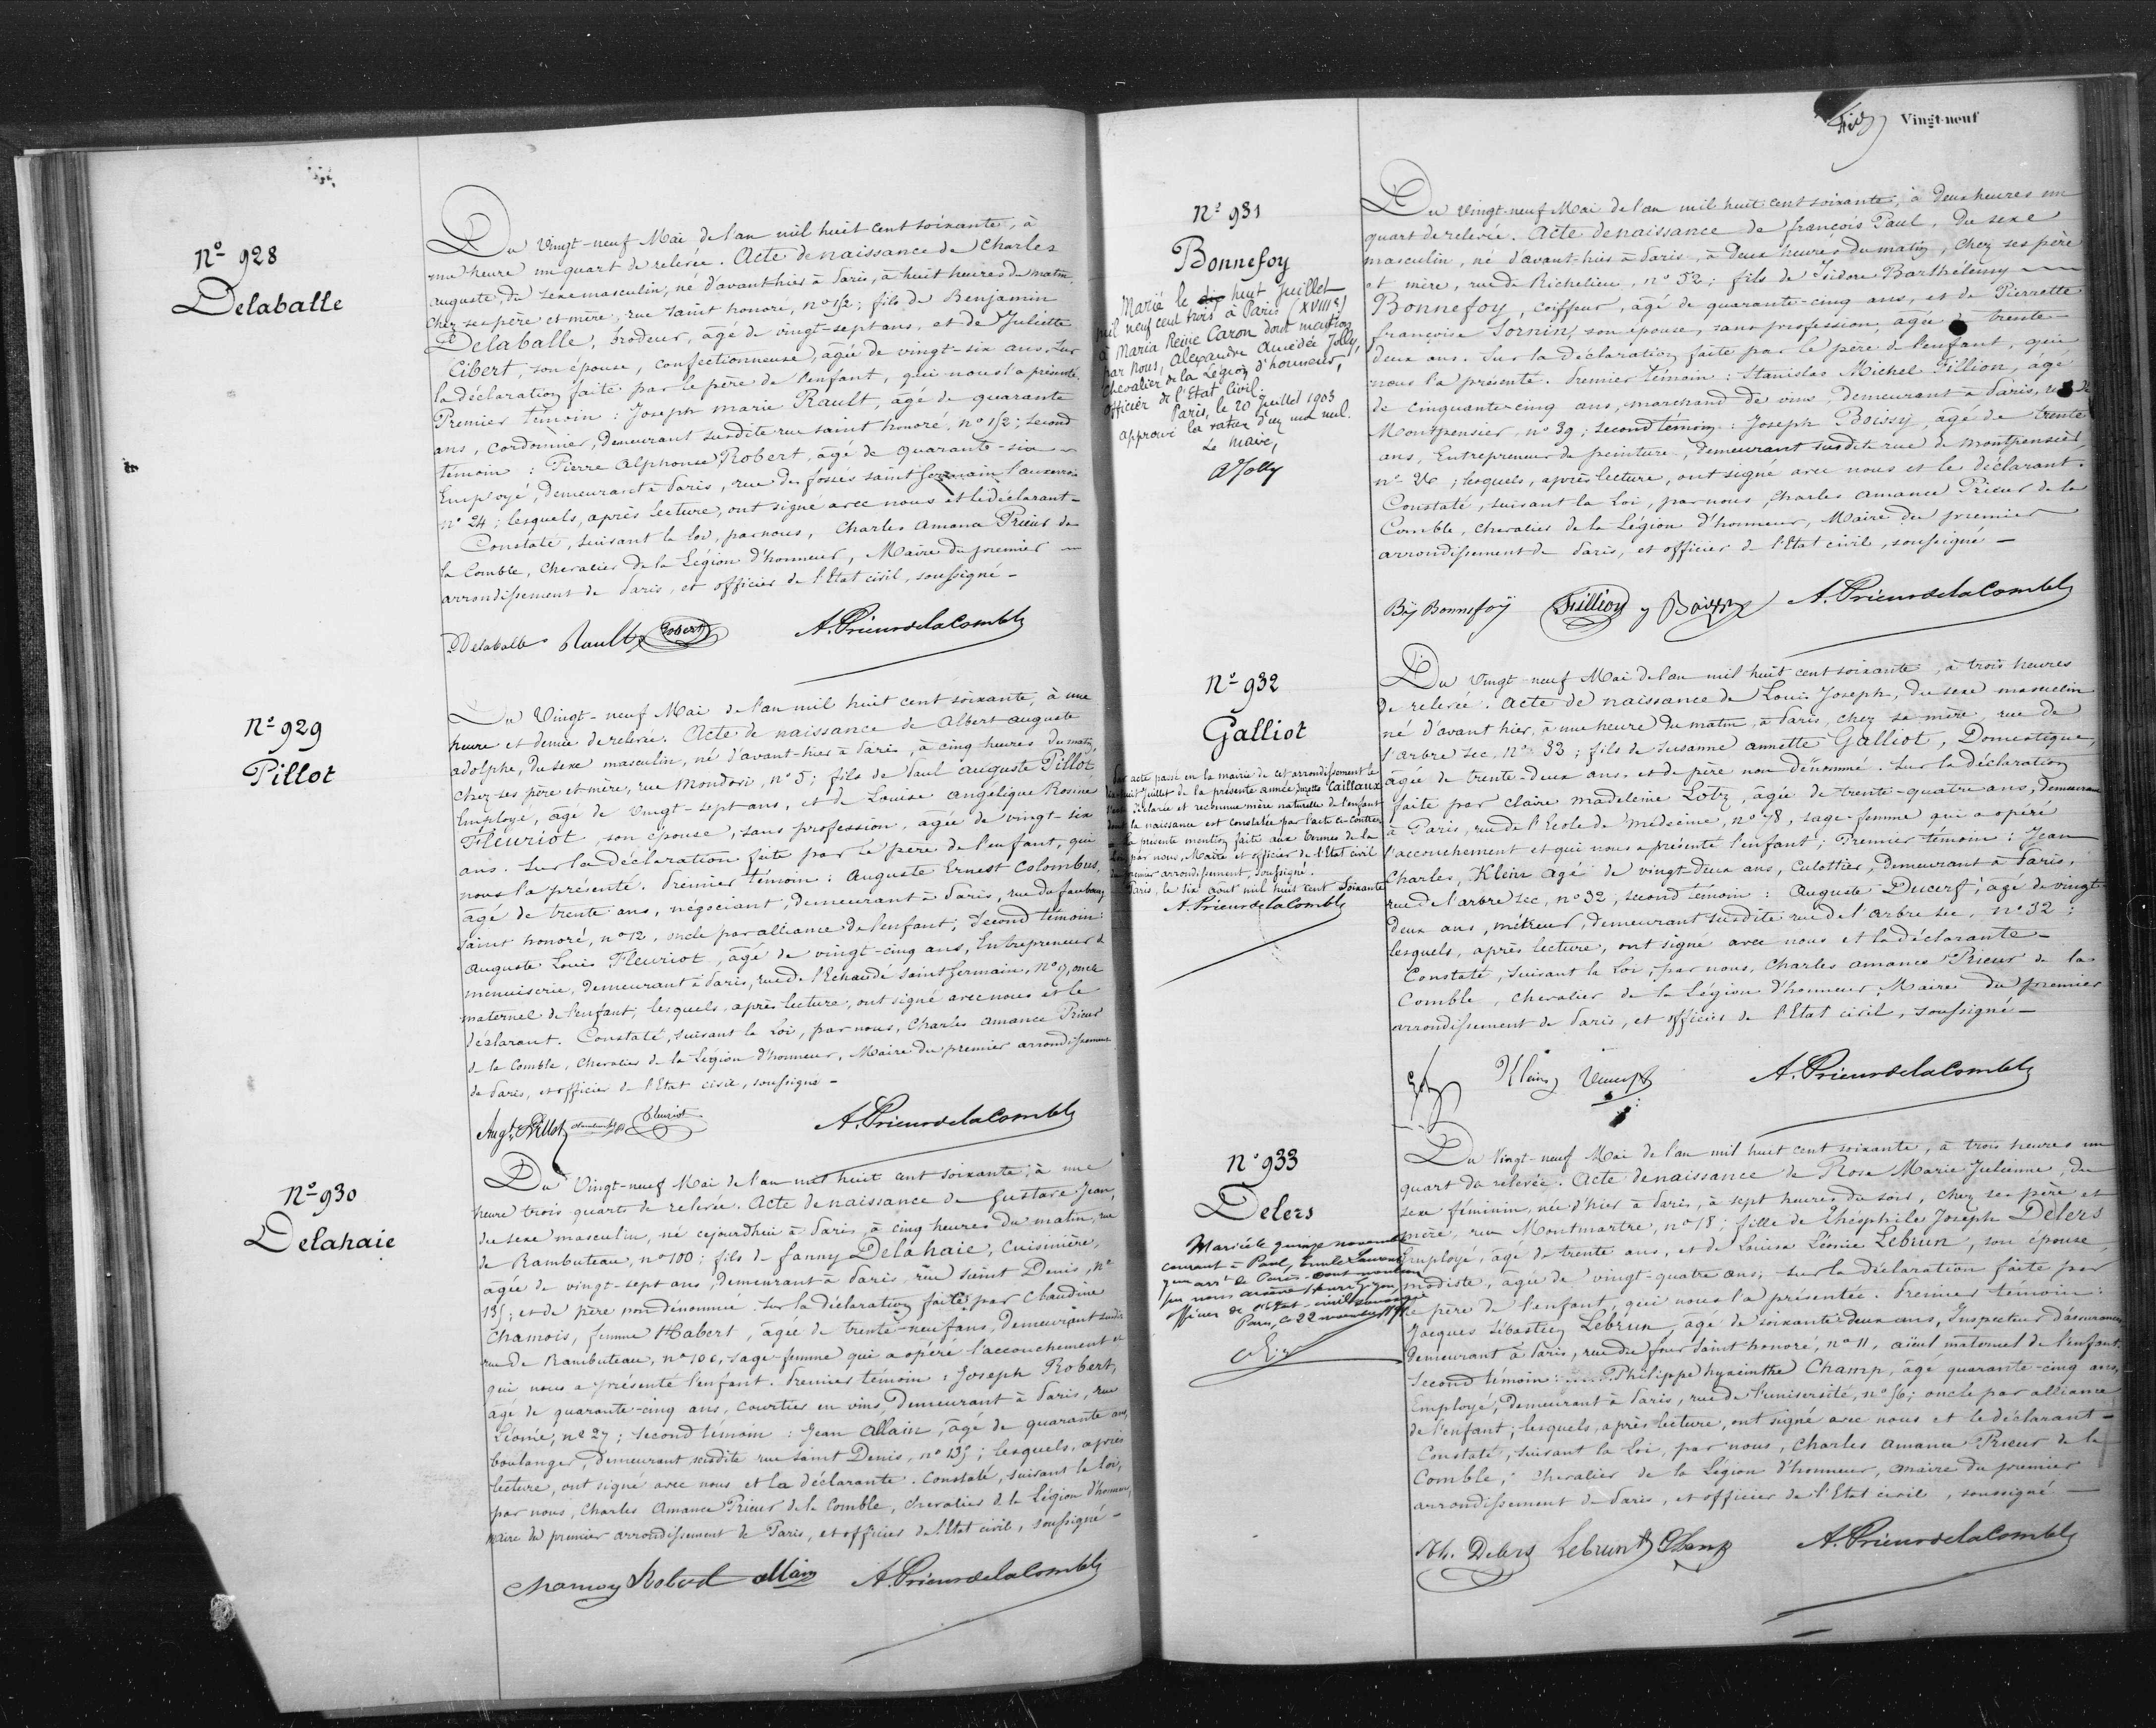 Nº 928
Delaballe
Du Vingt-neuf Mai de l'an mil huit cent soixante, à
une heure un quart de relevée. Acte de naissance de Charles
auguste, de sexe masculin, né d'avant hier à Paris, à huit heures du matin,
Chez ses père et mère, rue saint honoré, nº 152; fils de Benjamin
Delaballe, brodeur, âgé de vingt-sept ans, et de Juliette
Cibert, son épouse, confectionneuse, âgée de vingt-six ans. Sur
la déclaration faite par le père de l'enfant, qui nous l'a présenté.
Premier témoin : Joseph marie Rault, âgé de quarante
ans, cordonnier, demeurant susdite rue saint honoré, nº 152; second
témoin : Pierre alphonse Robert, âgé de quarante-six
Employé, demeurant à Paris, rue des fossés saint germain l'auxerrois
nº 24; lesquels, après lecture, ont signé avec nous et le déclarant-
Constaté, suivant la loi, par nous, Charles amance Prieur de
la Comble, chevalier de la Légion d'honneur, Maire du premier
arrondissement de Paris, et officier de l'Etat civil, soussigné-
Delaballe Rault Robert A. Prieur de la Comble
Nº 929
Pillot
Du Vingt-neuf Mai de l'an mil huit cent soixante, à une
heure et demie de relevée. Acte de naissance de Albert auguste
adolphe, du sexe masculin, né d'avant-hier à Paris, à cinq heures du matin,
Chez ses père et mère, rue Mondovi, nº 5; fils de Paul auguste Pillot
Employé, âgé de vingt-sept ans, et de Louise angélique Rosine
Fleuriot, son épouse, sans profession, agée de vingt-six
ans. Sur la déclaration faite par le père de l'enfant, qui
nous l'a présenté. Premier témoin : Auguste Ernest Colombus,
âgé de trente ans, négociant, demeurant à Paris, rue du faubourg
saint honoré, nº 12, oncle par alliance de l'enfant; Second témoin :
auguste Louis Fleuriot, âgé de vingt-cinq ans, Entrepreneur de
menuiserie, demeurant à Paris, rue de l'Echaudé saint Germain, nº 9, oncle
maternel de l'enfant; lesquels, après lecture, ont signé avec nous et le
déclarant. Constaté, suivant la loi, par nous, Charles amance Prieur
de la Comble, Chevalier de la Légion d'honneur, Maire du premier arrondissement
de Paris, et officier de l'Etat civil, soussigné-
Augte Pillot Fleuriot A. Prieur de la Comble
Nº 930
Delahaie
Du Vingt-neuf Mai de l'an mil huit cent soixante, à une
heure trois quarts de relevée. Acte de naissance de Gustave Jean,
du sexe masculin, né cejourd'hui à Paris, à cinq heures du matin, rue
de Rambuteau, nº 100; fils de fanny Delahaie, cuisinière,
âgée de vingt-sept ans, demeurant à Paris, rue saint Denis, nº
135; et de père non dénommé. Sur la déclaration faite par Claudine
Chamois, femme Habert, âgée de trente-neuf ans, demeurant susdite
rue de Rambuteau, nº 100, sage-femme qui a opéré l'accouchement et
qui nous a présenté l'enfant. Premier témoin : Joseph Robert,
âgé de quarante-cinq ans, courtier en vins, demeurant à Paris, rue
Léonie, nº 27; second témoin : Jean Allain, âgé de quarante ans,
boulanger, demeurant susdite rue saint Denis, nº 135; lesquels, après
lecture, ont signé avec nous et la déclarante. Constaté, suivant la loi,
par nous, Charles Amance Prieur de la Comble, chevalier de la Légion d'honneur,
Maire du premier arrondissement de Paris, et officier de l'Etat civil, soussigné-
Chamoy Robert Allain A. Prieur de la Comble
Vingt-neuf
Nº 931
Bonnefoy
Marié le dix huit Juillet
mil neuf cent trois à Paris (XVIIIe)
à Maria Reine Caron dont mention
par Nous, Alexandre Amédée Jolly,
Chevalier de la Légion d'honneur,
Officier de l'Etat Civil.
Paris, le 20 Juillet 1903
approuvé la rature d'un mot nul.
Le Maire,
A Jolly
Du Vingt-neuf Mai de l'an mil huit cent soixante, à deux heures un
quart de relevée. Acte de naissance de françois Paul, du sexe
masculin, né d'avant-hier à Paris, à deux heures du matin, chez ses père
et mère, rue de Richelieu, nº 52; fils de Isidore Barthélemy
Bonnefoy, coiffeur, âgé de quarante-cinq ans, et de Pierrette
françoise Sornin, son épouse, sans profession, âgée de trente-
deux ans. Sur la déclaration faite par le père de l'enfant, qui
nous l'a présenté. Premier témoin : Stanislas Michel Tillion, âgé
de cinquante-cinq ans, marchand de vins, demeurant à Paris, rue de
Montpensier, nº 39; second témoin : Joseph Boissy, âgé de trente
ans, Entrepreneur de peinture, demeurant susdite rue de Montpensier,
nº 26; lesquels, après lecture, ont signé avec nous et le déclarant.
Constaté, suivant la Loi, par nous, Charles amance Prieur de la
Comble, Chevalier de la Légion d'honneur, Maire du premier
arrondissement de Paris, et officier de l'Etat civil, soussigné-
By Bonnefoÿ Tillion J Boissy A. Prieur de la Comble
Nº 932
Galliot
Par acte passé en la mairie de cet arrondissement le
dix-huit Juillet de la présente année Caillaux
s'est déclarée et reconnue mère naturelle de l'enfant
dont la naissance est constatée par l'acte ci-contre.
La présente mention faite aux termes de la
Loi par nous, Maire et officier de l'Etat civil
du premier arrondissement, soussigné.
Paris, le six aout mil huit cent soixante
A. Prieur de la Comble
Du Vingt-neuf Mai de l'an mil huit cent soixante, à trois heures
de relevée. Acte de naissance de Louis Joseph, du sexe masculin
né d'avant hier, à une heure du matin, à Paris, chez sa mère, rue de
l'arbre sec, nº 32; fils de Susanne annette Galliot, Domestique,
âgée de trente-deux ans, et de père non dénommé. Sur la déclaration
faite par claire madeleine Lotz, âgée de trente-quatre ans, demeurant
à Paris, rue de l'Ecole de Médecine, nº 78, sage-femme qui a opéré
l'accouchement et qui nous a présenté l'enfant; Premier témoin : Jean
Charles, Klein agé de vingt-deux ans, Culottier, demeurant à Paris,
rue de l'arbre sec, nº 32, second témoin : Auguste Ducerf, âgé de vingt-
deux ans, métreur, demeurant susdite rue de l'arbre sec, nº 32;
lesquels, après lecture, ont signé avec nous et la déclarante-
Constaté, suivant la Loi, par nous, Charles amance Prieur de la
Comble, chevalier de la Légion d'honneur, Maire du premier
arrondissement de Paris, et officier de l'Etat civil, soussigné-
Lotz Klein Ducerf A. Prieur de la Comble
Nº 933
Delers
Mariée le quinze novembre
courant à Paul, Emile Laurent
arrt de Paris - dont mention
par nous
officier de l'Etat-civil soussigné
Paris, le 22 novembre
Du Vingt-neuf Mai de l'an mil huit cent soixante, à trois heures un
quart de relevée. Acte de naissance de Rose Marie Julienne, du
sexe féminin, née d'hier à Paris, à sept heures du soir, chez ses père et
mère, rue Montmartre, nº 18; fille de Théophile Joseph Delers
Employé, âgé de trente ans, et de Louise Léonie Lebrun, son épouse
modiste, agée de vingt-quatre ans; sur la déclaration faite par
le père de l'enfant, qui nous l'a présentée. Premier témoin :
Jacques Sébastien Lebrun, agé de soixante-deux ans, Inspecteur d'assurances
demeurant à Paris, rue du four saint honoré, nº 11, aïeul maternel de l'enfant.
Second témoin : Philippe hyacinthe Champ, âgé quarante-cinq ans,
Employé, demeurant à Paris, rue de l'université, nº 56; oncle par alliance
de l'enfant; lesquels, après lecture, ont signé avec nous et le déclarant-
Constaté, suivant la Loi, par nous, Charles amance Prieur de la
Comble, Chevalier de la Légion d'honneur, maire du premier
arrondissement de Paris, et officier de l'Etat civil, soussigné-
Th. Delers Lebrun Champ A. Prieur de la Comble